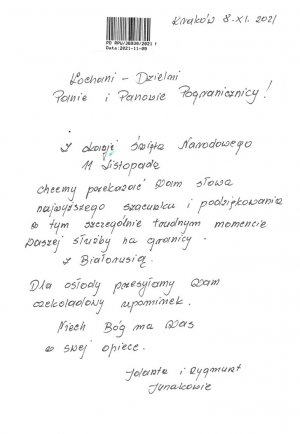 Kraków 8.XI.2021
Data:2021-11-09
Kochani - Dzielni
Panie i Panowie Pogranicznicy!
Z okazji Święta Narodowego
11 Listopada
chcemy przekazać Wam słowa
najwyższego szacunku i podziękowania
w tym szczególnie trudnym momencie
Waszej służby na granicy
z Białorusią.
Dla osłody przesyłamy Wam
czekoladowy upominek.
Niech Bóg ma Was
w swej opiece.
Jolanta i Zygmunt